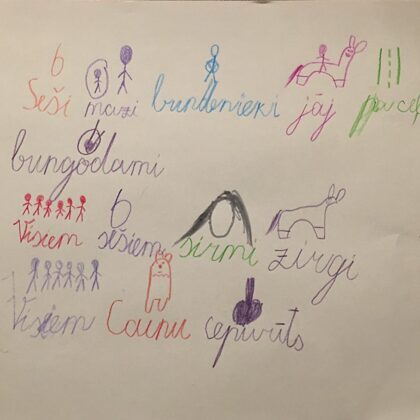 6
Seši mazi bundznieki jāj pa ceļ
bungodami
6
Visiem sešiem sirmi zirgi
Visiem Caunu